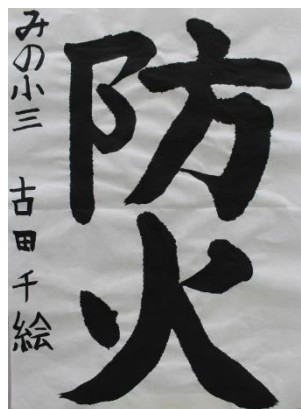 防火
みの小三 古田千絵